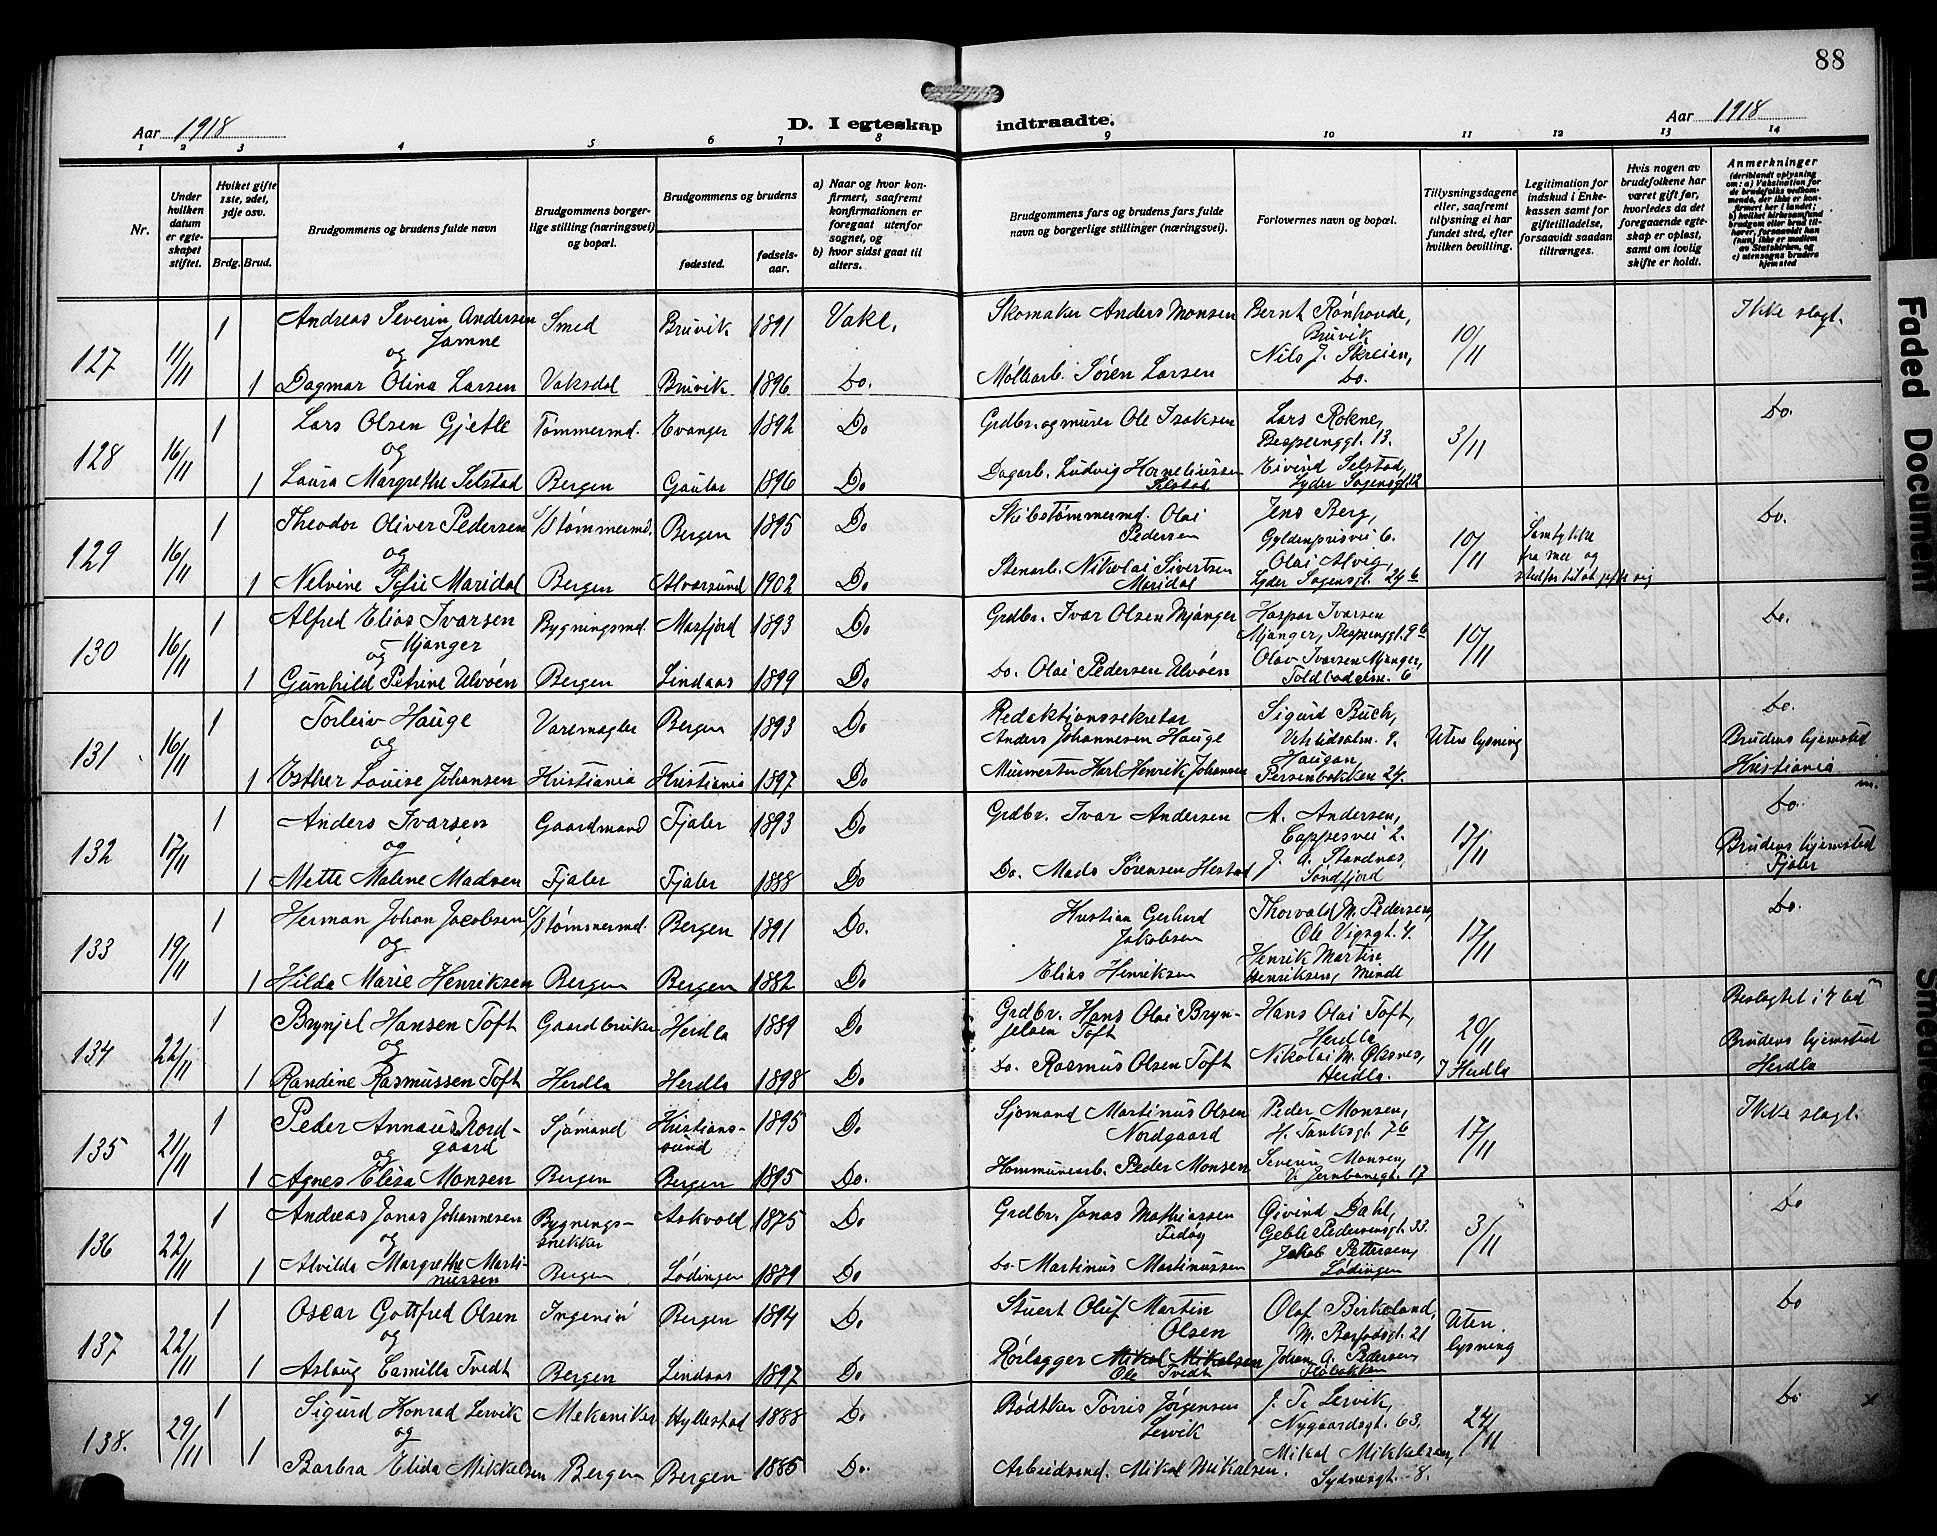 88
Aar 1918
D. I egteskap indtraadte.
Aar 1918
1 2 3 4 5 6 7 8 9 10 11 12 13 14
Nr.
Under hvilken datum er egteskapet stiftet.
Hviket gifte 1ste, 2det, 3dje osv.
Brdg. Brud.
Brudgommens og brudens fulde navn
Brudgommens borgerlige stilling (næringsvei) og bopæl.
Brudgommens og brudens
fødested. fødselsaar.
a) Naar og hvor konfirmert, saafremt konfirmationen er foregaat utenfor sognet, og
b) hvor sidst gaat til alters.
Brudgommens fars og brudens fars fulde navn og borgerlige stillinger (næringsvei).
Forlovernes navn og bopæl.
Tillysningsdagene eller, saafremt tillysning ei har fundet sted, efter hvilken bevilling.
Legitimation for indskud i Enkekassen samt for giftetilladelse, forsaavidt saadan tiltrænges.
Hvis nogen av brudefolkene har været gift før, hvorledes da det foregaaende egteskap er opløst, samt om lovlig skifte er holdt.
Anmerkninger
(deriblandt oplysning om: a) Vaksination for de brudefolks vedkommende, der ikke er konfirmert her i landet; b) hvilket kirkesamfund brudgom eller brud tilhører, forsaavidt han (hun) ikke er medlem av Statskirken, og c) utensogns bruders hjemsted
127 11/11 1 Andreas Severin Andersen Jamne Smed Bruvik 1891 Vakc. Skomaker Anders Monsen Bernt Rønhovde, Bruvik 10/11 Ikke slegt.
og
1 Dagmar Olina Larsen Vaksdal Bruvik 1896 Do. Møllearb. Søren Larsen Nils J. Skreien, Do.
128 16/11 1 Lars Olsen Gjetle Tømmermd. Evanger 1892 Do Grdbr. og murer Ole Isaksen Lars Rokne, 13. 3/11 Do.
og
1 Laura Margrethe Selstad Bergen Gaular 1896 Do Dagarb. Ludvig Korneliussen Selstad Eivind Selstad, Lyder Sagensgt. 12
129 16/11 1 Theodor Oliver Pedersen S/Stømmermd. Bergen 1895 Do Skibstømmermd. Olai Pedersen Jens Berg, Gyldenprisvei 6. 10/11 Samtykke fra mor og stedfar til at gifte sig Do.
og
1 Nelvine Maridal Bergen Alversund 1902 Do Stenarb. Nikolai Sivertsen Maridal Olai Alvig, Lyder Sagensgt. 24 b
130 16/11 1 Alfred Elias Ivarsen Mjanger Bygningsmd. Masfjord 1893 Do Grdbr. Ivar Olsen Mjanger Kaspar Ivarsen Mjanger, 9 b 10/11 Do.
og
1 Gunhild Petrine Ulvøen Bergen Lindaas 1899 Do Do. Olai Pedersen Ulvøen Olav Ivarsen Mjanger, Toldbodalm. 6
131 16/11 1 Torleiv Hauge Varemægler Bergen 1893 Do Redaktionssekretær Anders Johannesen Hauge Sigurd Buch, 8. Uten lysning Do.
og
1 Esther Louise Johansen Kristiania Kristiania 1897 Do Murmester Karl Henrik Johansen Haugan Persenbakken 24. Brudens hjemsted Kristiania
132 17/11 1 Anders Ivarsen Gaardmand Fjaler 1893 Do Grdbr. Ivar Andersen A. Andersen, Cappesvei 2. 17/11 Do.
og
1 Mette Malene Madsen Fjaler Fjaler 1888 Do Do. Mads Sørensen Hestad J. A. Standnæs, Søndfjord Brudens hjemsted Fjaler
133 19/11 1 Herman Johan Jacobsen S/Stømmermd. Bergen 1891 Do. Kristian Gerhard Jakobsen Thorvald M. Pedersen, Ole Vigsgt. 4. 17/11 Do.
og
1 Hilda Marie Henriksen Bergen Bergen 1882 Do Elias Henriksen Henrik Martin Henriksen, Minde
134 22/11 1 Brynjel Hansen Toft Gaardbruker Herdla 1889 Do Grdbr. Hans Olai Brynjelsen Toft Hans Olai Toft, Herdla 20/11 I Herdla Beslegtet i 7 led
og
1 Randine Rasmussen Toft Herdla Herdla 1898 Do Do. Rasmus Olsen Toft Nikolai M. Oksnes, Herdla. Brudens hjemsted Herdla
135 21/11 1 Peder Annæus Nordgaard Sjømand Kristianssund 1895 Do. Sjømand Martinus Olsen Nordgaard Peder Monsen, H. Tanksgt. 7 b 17/11 Ikke slegt.
og
1 Agnes Elisa Monsen Bergen Bergen 1895 Do. Kommunearb. Peder Monsen Severin Monsen, V. Jernbanegt. 17
136 22/11 1 Andreas Jonas Johannesen Bygningssnekker Askvold 1875 Do Grdbr. Jonas Mathiassen Øivind Dahl, Geble Pedersensgt. 33. 3/11 Do
og
1 Alvilda Margrethe Martinussen Bergen Lødingen 1879 Do Do. Martinus Martinussen Jakob Pettersen, Lødingen
137 22/11 1 Oscar Gottfred Olsen Ingeniør Bergen 1894 Do Stuert Oluf Martin Olsen Olaf Birkeland, 21 Uten lysning Do
og
1 Aslaug Camilla Tvedt Bergen Lindaas 1897 Do Rørlægger Mikal Mikalsen Ole Tvedt Johan A. Pedersen,
138. 29/11 1 Sigurd Konrad Lervik Mekaniker Hyllestad 1888 Do Bødtker Tørris Jørgensen Lervik J. T. Lervik, Nygaardsgt. 63. 24/11 Do x
og
1 Barbra Elida Mikkelsen Bergen Bergen 1885 Do. Arbeidsmd. Mikal Mikalsen. Mikal Mikkelsen, Sydnesgt. 8.
Faded Document
Smeared